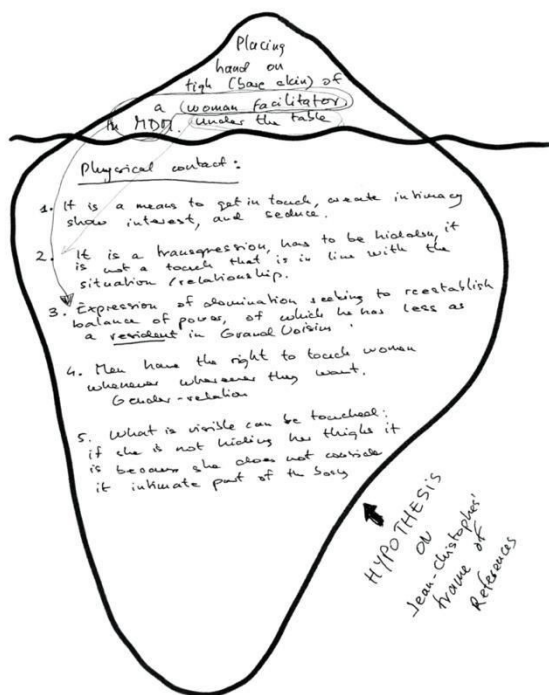 Placing
hand on
tigh (bare skin) of
a (woman facilitator)
in MDM. under the table
Physical contact:
1. It is a means to get in touch, create intimacy
show interest, and seduce.
2. It is a transgression, has to be hidden, it
is not a touch that is in line with the
situation/relationship.
3. Expression of domination seeking to reestablish
balance of power, of which he has less as
a resident in Grand Voisins.
4. Men have the right to touch women
whenever wherever they want.
Gender-relation
5. What is visible can be touched:
if she is not hiding her thighs it
is because she does not consider
it intimate part of the body
HYPOTHESIS
ON
Jean-Christophes'
frame of
References